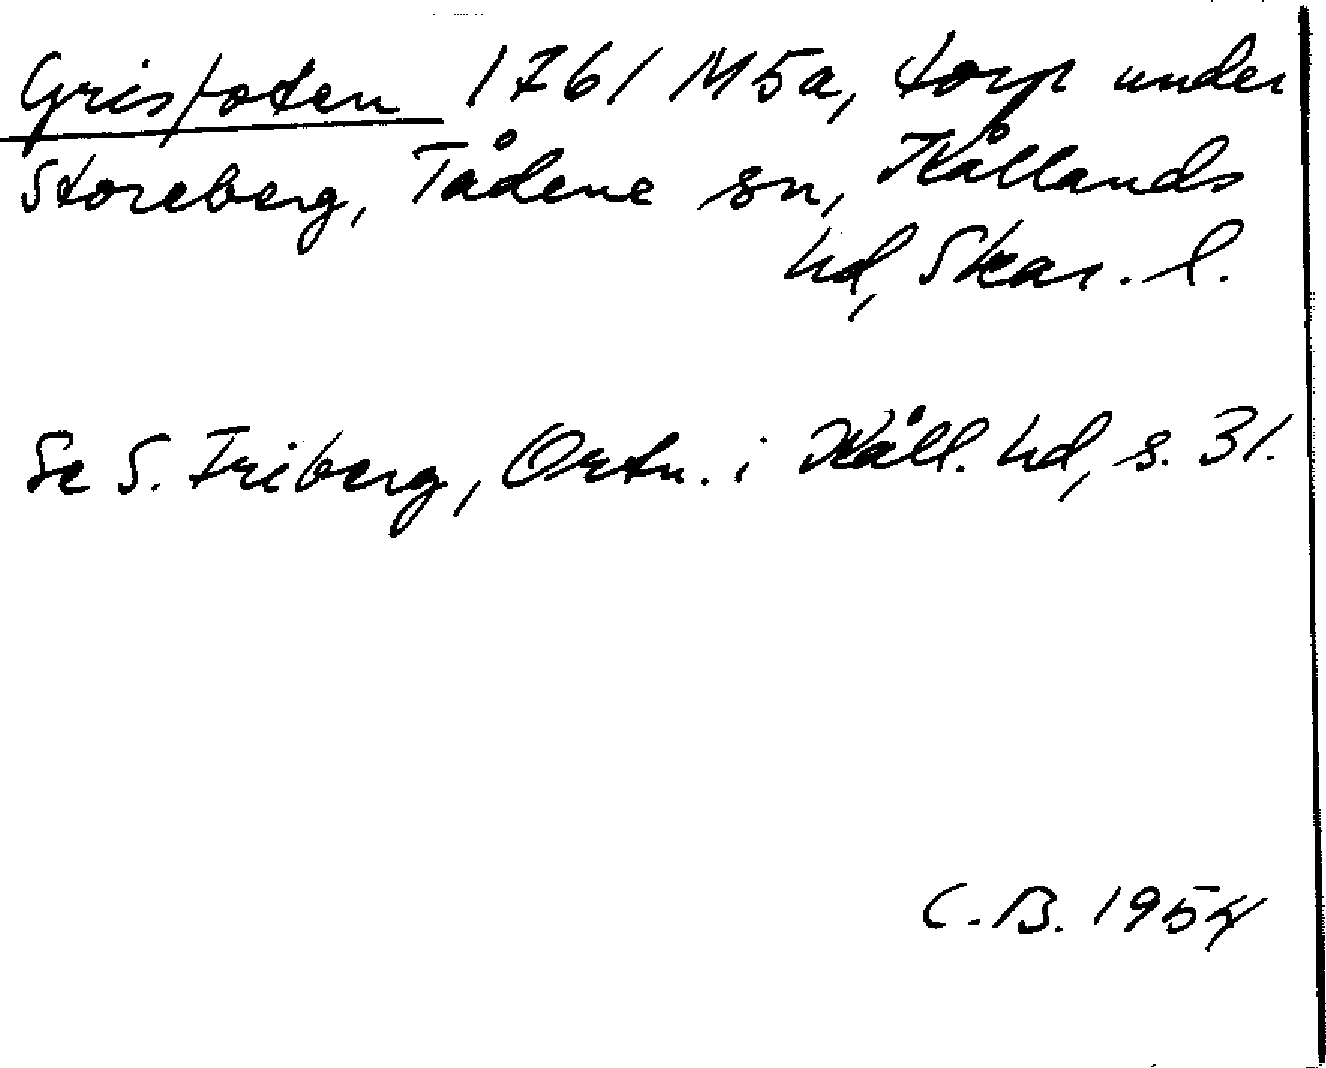 Grisfoten 1761 M5a, torp under
Storeberg, Tådene sn, Kållands
hd, Skar. l.
Se S. Friberg, Ortn. i Kåll. hd, s. 31.
C. B. 1954